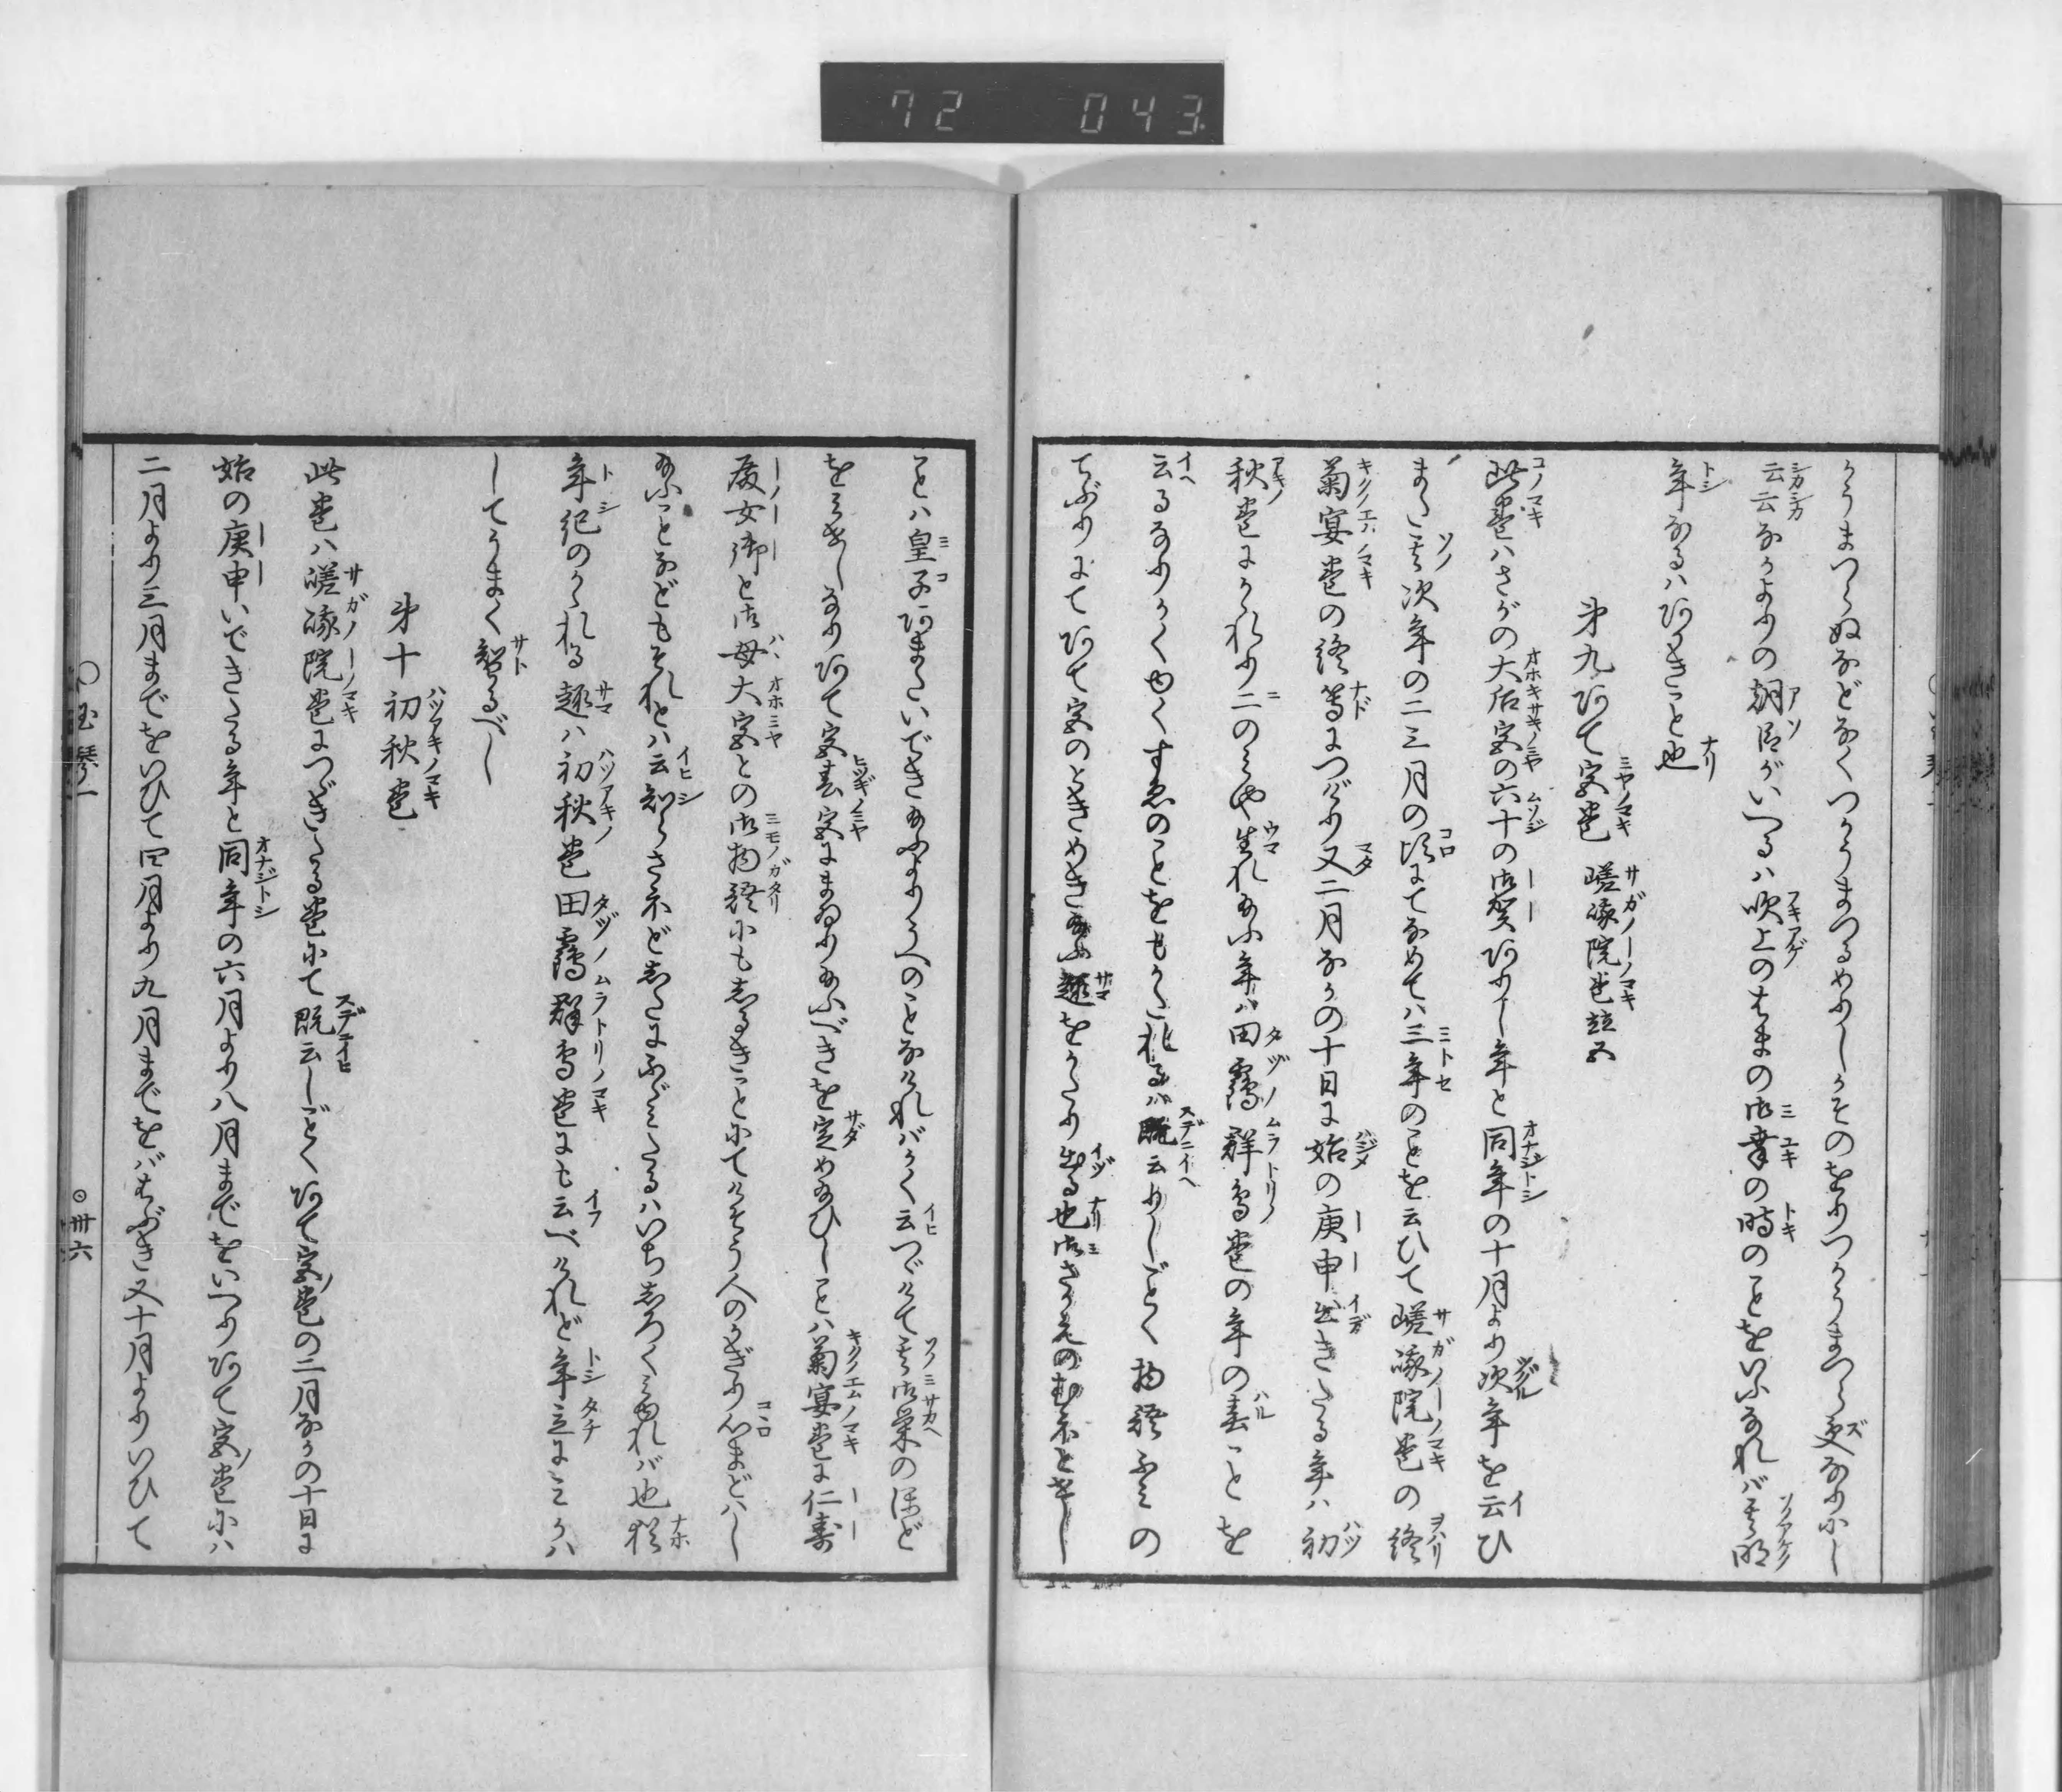 72 043
かうまつらぬなどなくつかうまつるめりしかそのをりつかうまつらず更なりかし
云云などよりの朝臣がいへるハ吹上のはまの御幸の時のことをいふなれバ其明
年なるハあてきこと也
第九あて宮巻 嵯峨院巻並五
此巻ハさがの大后宮の六十の御賀ありし年と同年の十月より次年を云ひ
また其次年の二三月の頃までなめてハ三年のことを云ひて嵯峨院巻の終
菊宴巻の終等につゞり又二月なかの十日に始の庚申出きたる年ハ初
秋巻にかゝれり二のみや生れ給ふ年ハ田鶴群鳥巻の年の春ことを
云るなりかくやくすゑのことをもかたれるハ既云りしごとく物語ふみの
てぶりにてあて宮のときめき給ふ趣をかたり出る也御さかえのむねときし
ことハ皇子あまたいでき給ふよりうへのことなれバかく云つゞけて其御栄のほど
をみせしなりあて宮春宮にまゐり給ふべきを定め給ひしことハ菊宴巻に仁寿
殿女御と御母大宮との御物語にもしるきことにてけさう人のかぎり心まどハし
給ふことなどもそれとハ云知らさねど志たにふくみたるハいち志ろくみゆれバ也猶
年紀のかゝれる趣ハ初秋巻田鶴群鳥巻にも云べけれど年立にみえハ
してうまく智るべし
第十初秋巻
此巻ハ嵯峨院巻につゞきたる巻にて既云しごとくあて宮ノ巻の二月なかの十日に
始の庚申いできたる年と同年の六月より八月までをいへりあて宮ノ巻にハ
二月より三月までをいひて四月より九月までをバはぶき又十月よりいひて
〇玉琴一 ⊙卅六